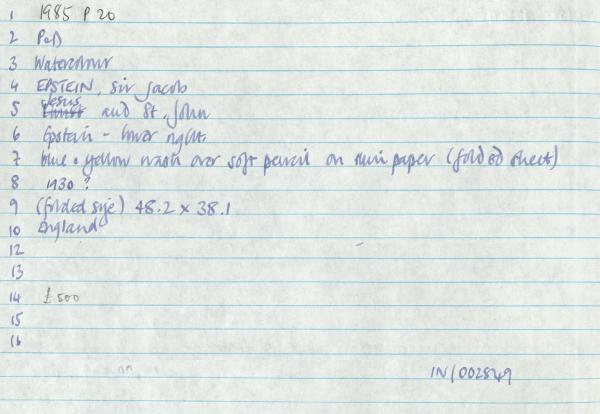 1 1985 P 20
2 P&D
3 Watercolour
4 EPSTEIN, Sir Jacob
Jesus
5 Christ and St. John
6 Epstein - lower right.
7 blue & yellow wash over soft pencil on thin paper (folded sheet)
8 1930 ?
9 (folded size) 48.2 x 38.1
10 England
12
13
14 £500
15
16
IN/002849